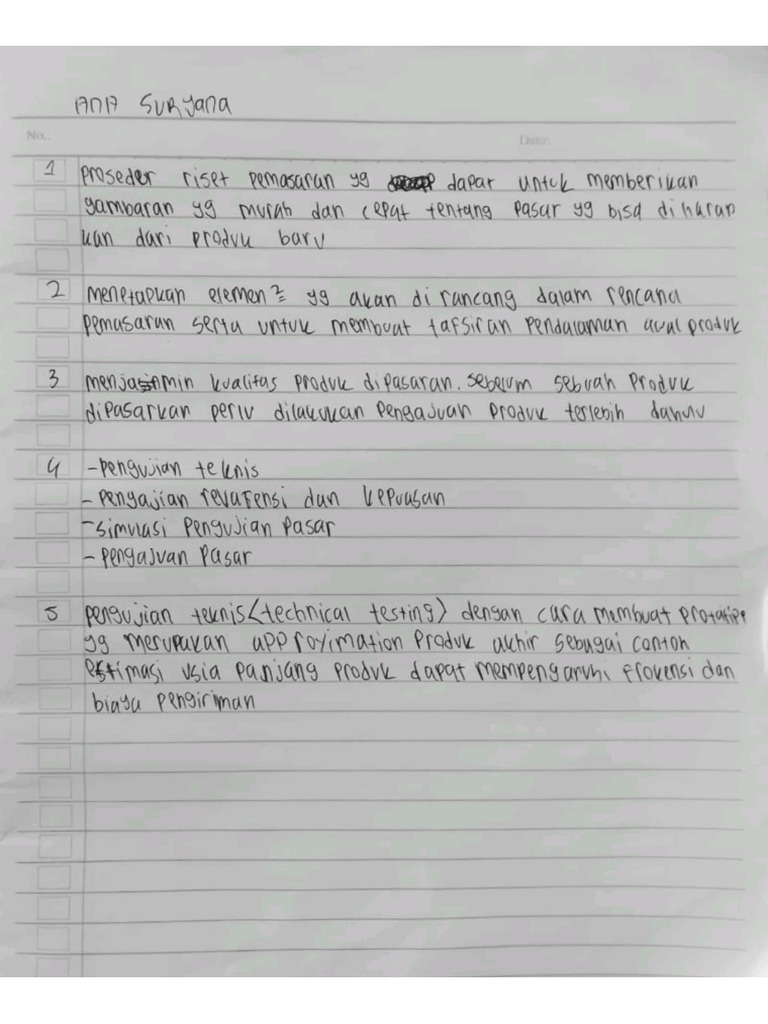 Ana Suryana
No.:
Date:
1 proseder riset pemasaran yg dapar untuk memberikan
gambaran yg murah dan cepat tentang pasar yg bisa diharap
kan dari produk baru
2 menetapkan elemen² yg akan di rancang dalam rencana
pemasaran serta untuk membuat tafsiran pendalaman awal produk
3 menjasnmin kualitas produk dipasaran. sebelum sebuah produk
dipasarkan perlu dilakukan pengajuan produk terlebih dahulu
4 -pengujian teknis
-pengajian revarensi dan kepuasan
-simulasi pengujian pasar
-pengajuan pasar
5 pengujian teknis (technical testing) dengan cara membuat prototipe
yg merupakan approyimation produk akhir sebagai contoh
estimasi usia panjang produk dapat mempengaruhi frokensi dan
biaya pengiriman